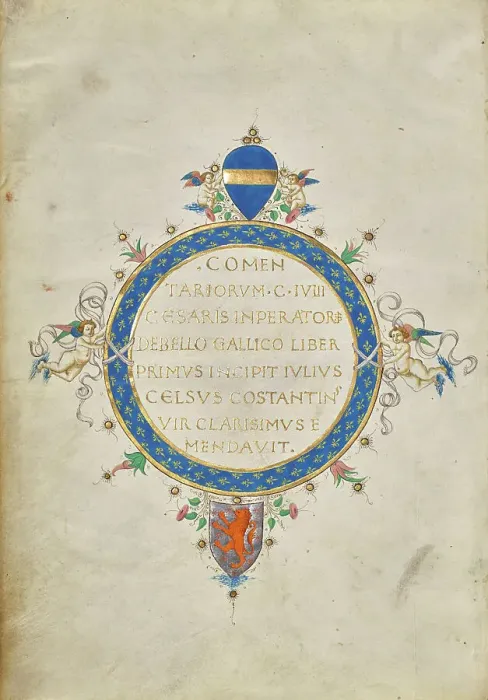 .COMEN
TARIORVM·C·IVIII
CAESARIS INPERATORẼ
DEBELLO GALLICO LIBER
PRIMUS INCIPIT IULIUS
CELSVS COSTANTINˢ
VIR CLARISIMVS E
MENDAVIT.